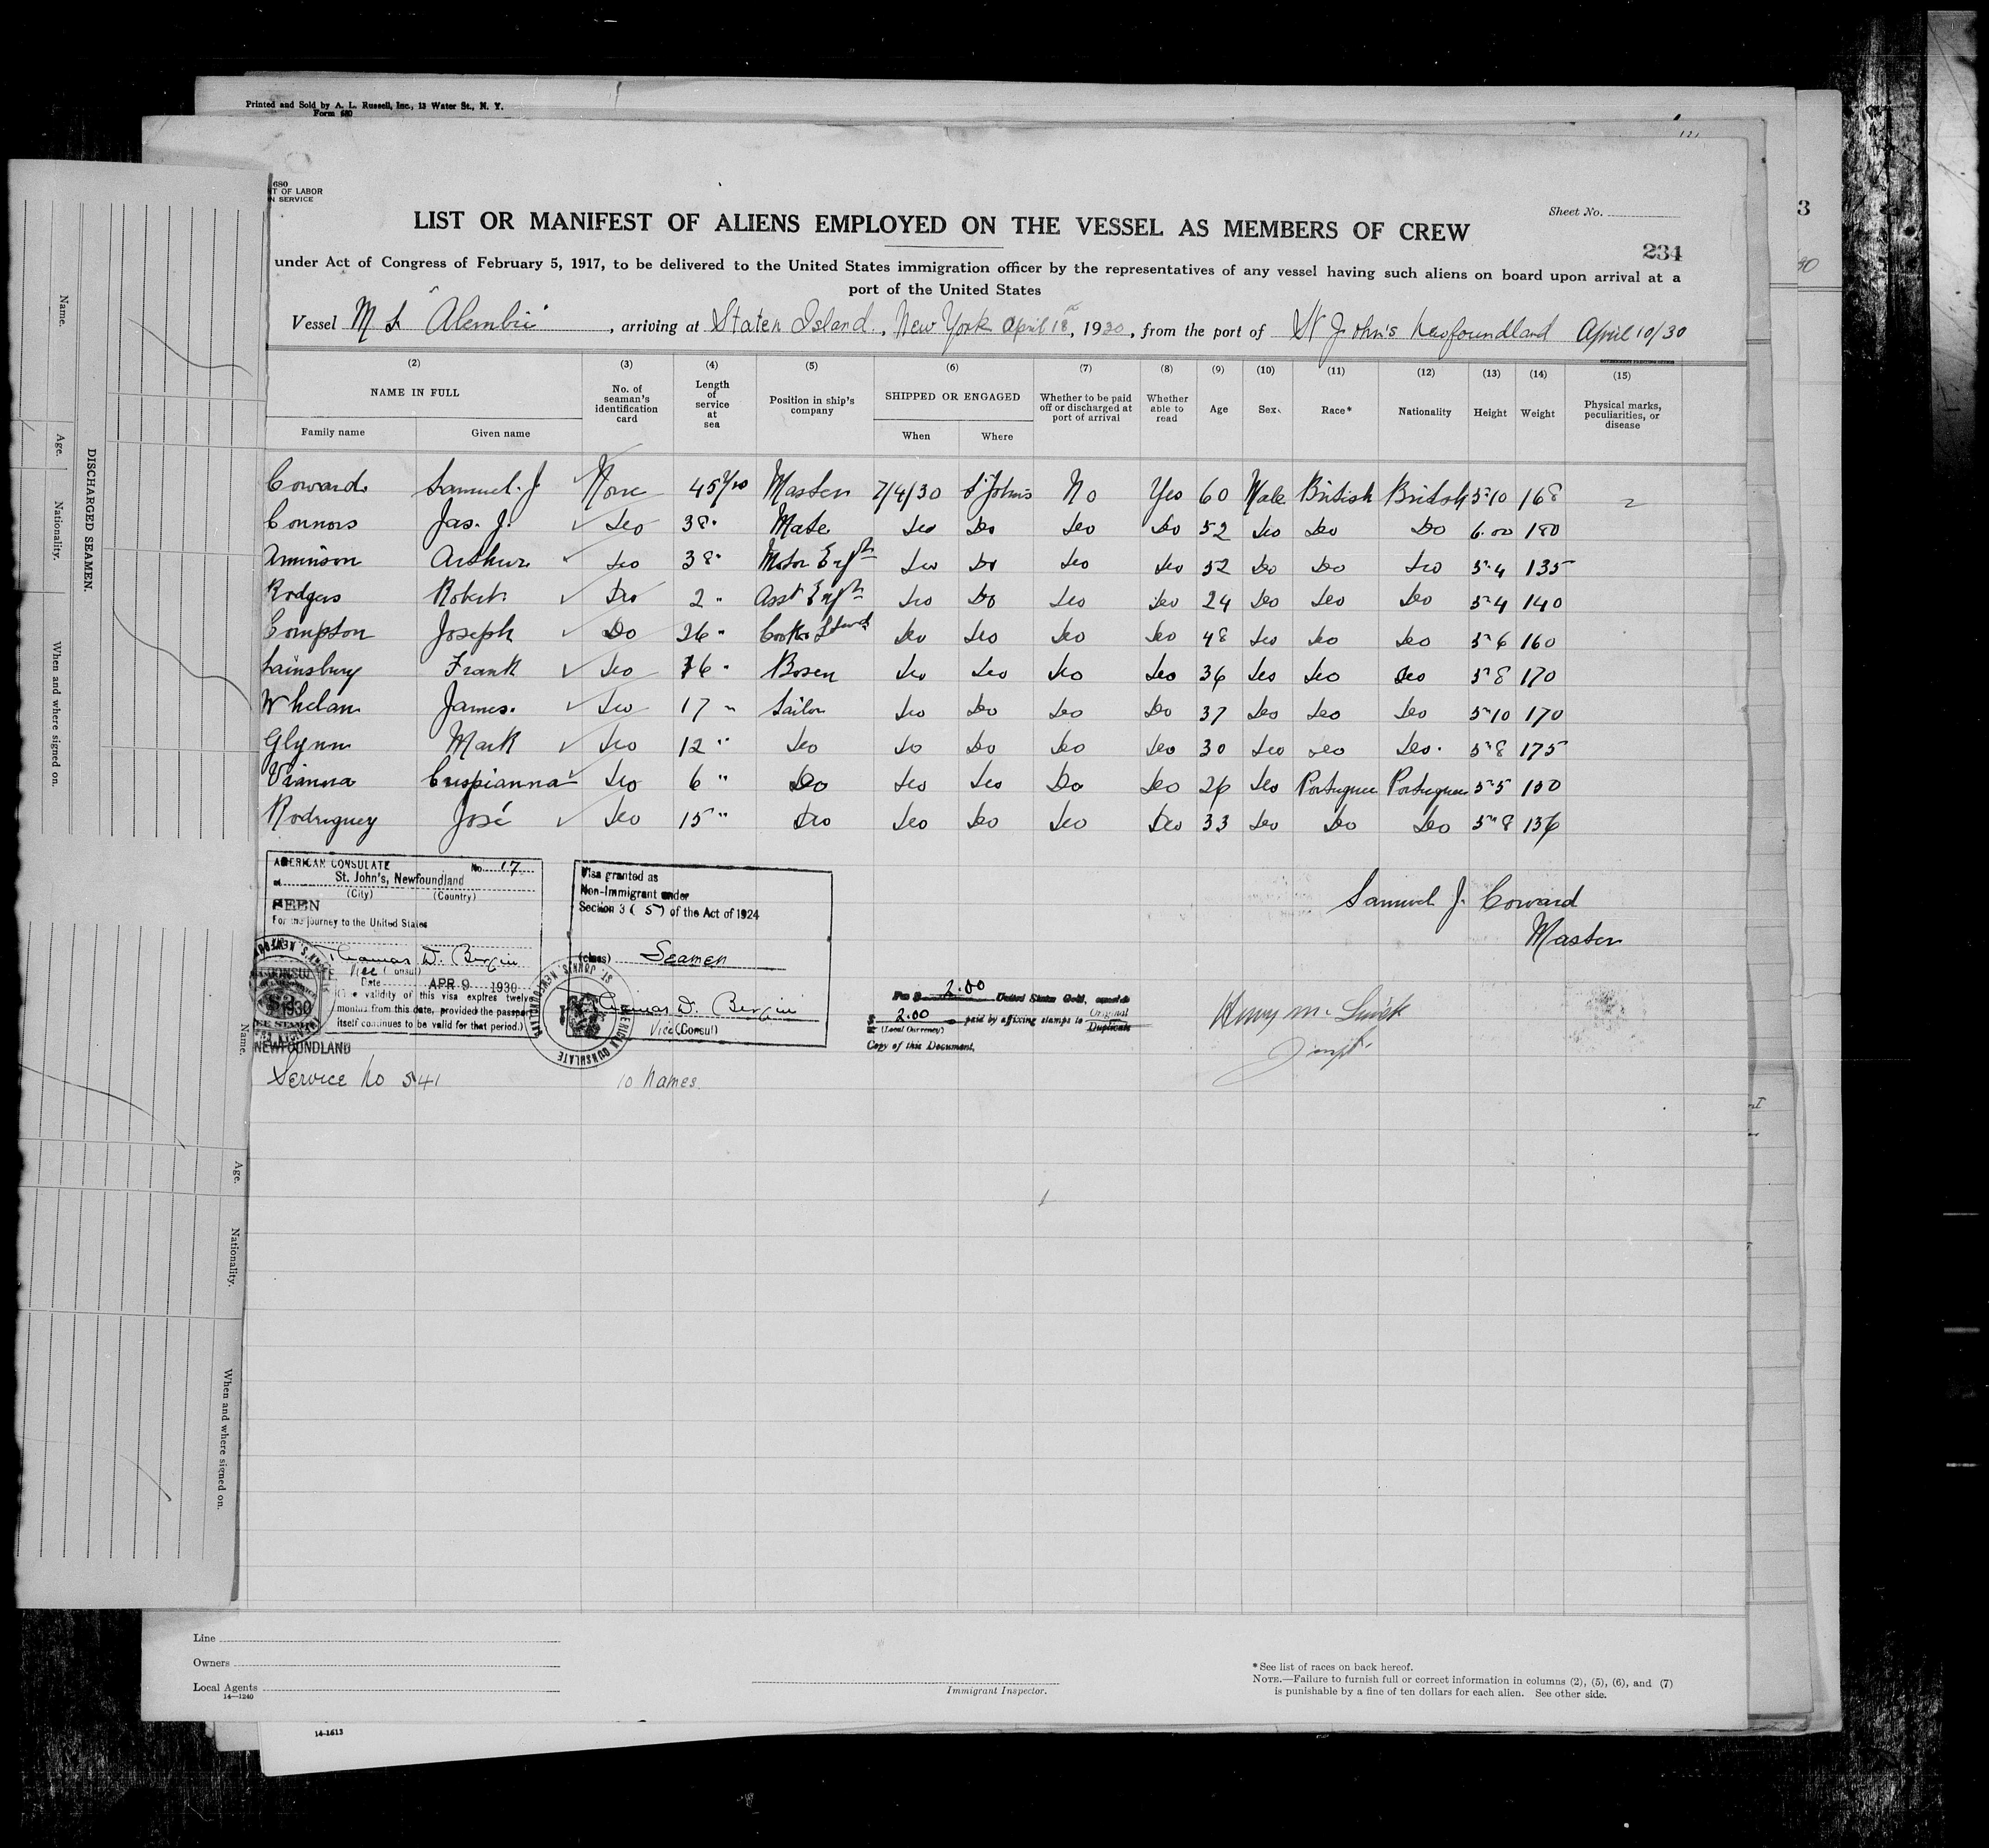 Printed and Sold by A. L. Russell, Inc., 13 Water St., N. Y.
Form 680
680
T OF LABOR
N SERVICE
Sheet No.
LIST OR MANIFEST OF ALIENS EMPLOYED ON THE VESSEL AS MEMBERS OF CREW
234
3
under Act of Congress of February 5, 1917, to be delivered to the United States immigration officer by the representatives of any vessel having such aliens on board upon arrival at a
port of the United States
Vessel M S "Alembic" , arriving at Staten Island, New York April 18, 1930, from the port of St John's Newfoundland April 10/30
(2) (3) (4) (5) (6) (7) (8) (9) (10) (11) (12) (13) (14) (15)
NAME IN FULL No. of seaman's identification card Length of service at sea Position in ship's company SHIPPED OR ENGAGED Whether to be paid off or discharged at port of arrival Whether able to read Age Sex Race* Nationality Height Weight Physical marks, peculiarities, or disease
Family name Given name When Where
Coward Samuel. J None 45 Master 7/4/30 St Johns No Yes 60 Male British British 5-10 168
Connors Jas. J. Do 38 Mate Do Do Do Do 52 Do Do Do 6.00 180
Aminson Arthur Do 38 Motor Engr Do Do Do Do 52 Do Do Do 5-4 135
Rodgers Robert Do 2 " Asst Engr Do Do Do Do 24 Do Do Do 5-4 140
Compton Joseph Do 26 " Cook & Stwd Do Do Do Do 48 Do Do Do 5-6 160
Sainsbury Frank Do 16 " Bosen Do Do Do Do 36 Do Do Do 5-8 170
Whelan James. Do 17 " Sailor Do Do Do Do 37 Do Do Do 5-10 170
Glynn Mark Do 12 " Do Do Do Do Do 30 Do Do Do. 5-8 175
Vianna Crispianna Do 6 " Do Do Do Do Do 26 Do Portuguee Portuguee 5-5 150
Rodriguez José Do 15 " Do Do Do Do Do 33 Do Do Do 5-8 136
AMERICAN CONSULATE No. 17
at St. John's, Newfoundland
(City) (Country)
SEEN
For the journey to the United States
Thomas D. Bergin
Vice (Consul)
Date APR 9 1930
(The validity of this visa expires twelve
months from this date, provided the passport
itself continues to be valid for that period.)
NEWFOUNDLAND
Visa granted as
Non-Immigrant under
Section 3 ( 5 ) of the Act of 1924
(class) Seamen
Thomas D. Bergin
Vice (Consul)
AMERICAN CONSULATE ST. JOHN'S, NEWFOUNDLAND
Samuel J. Coward
Master
Fee $ 2.00 United States Gold,
$ 2.00 paid by affixing stamps to Original Duplicate
(Local Currency)
Copy of this Document.
Service No 541
10 Names
Line
Owners
Local Agents
14-1240
Immigrant Inspector.
*See list of races on back hereof.
NOTE.—Failure to furnish full or correct information in columns (2), (5), (6), and (7)
is punishable by a fine of ten dollars for each alien. See other side.
14-1613
DISCHARGED SEAMEN.
Name. Age. Nationality. When and where signed on.
Name. Age. Nationality. When and where signed on.